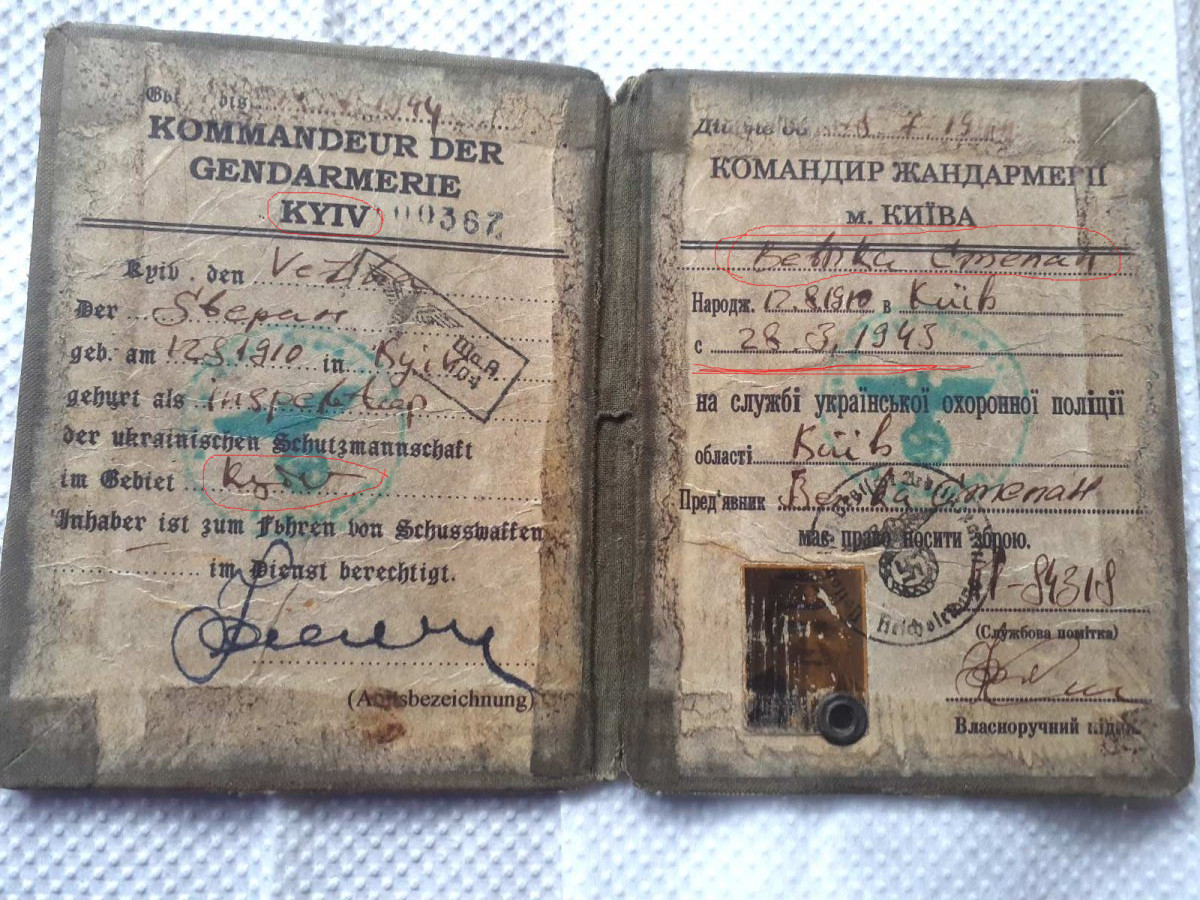 bis 1944
KOMMANDEUR DER
GENDARMERIE
KYIV 00367
Kyiv . den
Der Stepan
geb. am 12.8.1910 in Kyiv
gehyrt als inspektıор
der ukrainischen Schutzmannschaft
im Gebiet Kyiv
Inhaber ist zum Fьhren von Schusswaffen
im Dienst berechtigt.
(Amtsbezeichnung)
КОМАНДИР ЖАНДАРМЕРІІ
м. КИЇВА
Степан
Народж. 12.8.1910 в Київ
с 28.3.1943
на службі української охоронної поліції
області Київ
Пред'явник Степан
має право носити зброю.
(Службова помітка)
Власноручний підпис